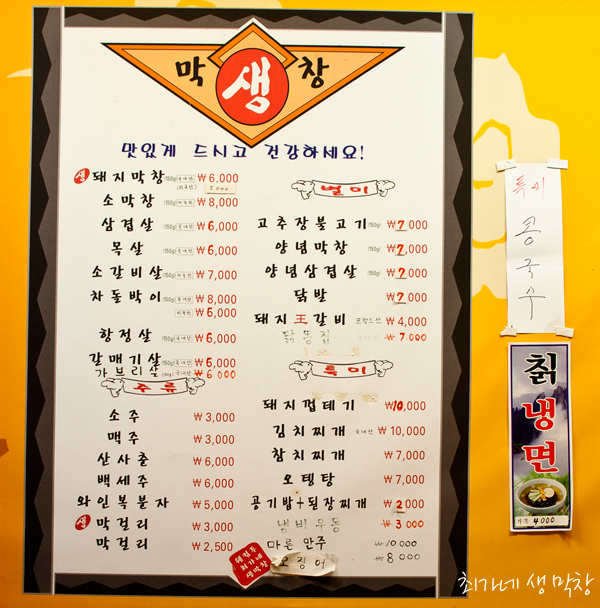 막 생 창
맛있게 드시고 건강하세요!
생 돼지막창 (150g) 국내산 ₩6,000
(미국산)
소막창 (150g) 미국산 ₩8,000
삼겹살 (150g) 국내산 ₩6,000
목살 (150g) 국내산 ₩6,000
소갈비살 (150g) 미국산 ₩7,000
차돌박이 (150g) 국내산 ₩8,000
미국산 ₩6,000
항정살 (150g) 국내산 ₩6,000
갈매기살 (150g) 국내산 ₩6,000
가브리살 (150g) 국내산 ₩6000
주류
소주 ₩3,000
맥주 ₩3,000
산사춘 ₩6,000
백세주 ₩6,000
와인복분자 ₩5,000
생 막걸리 ₩3,000
막걸리 ₩2,500
별미
고추장불고기 (150g) ₩7,000
양념막창 (150g) ₩7,000
양념삼겹살 (150g) ₩7,000
닭발 ₩7,000
돼지王갈비 프랑스산 ₩4,000
닭똥집 국내산 ₩7000
특미
돼지껍테기 ₩10,000
김치찌개 국내산 ₩10,000
참치찌개 ₩7,000
오뎅탕 ₩7,000
공기밥+된장찌개 ₩2,000
냄비우동 ₩3000
마른안주 ₩10000
오징어 ₩8000
최가네
생막창
특미
콩국수
칡냉면
가격 4000
최가네 생 막창